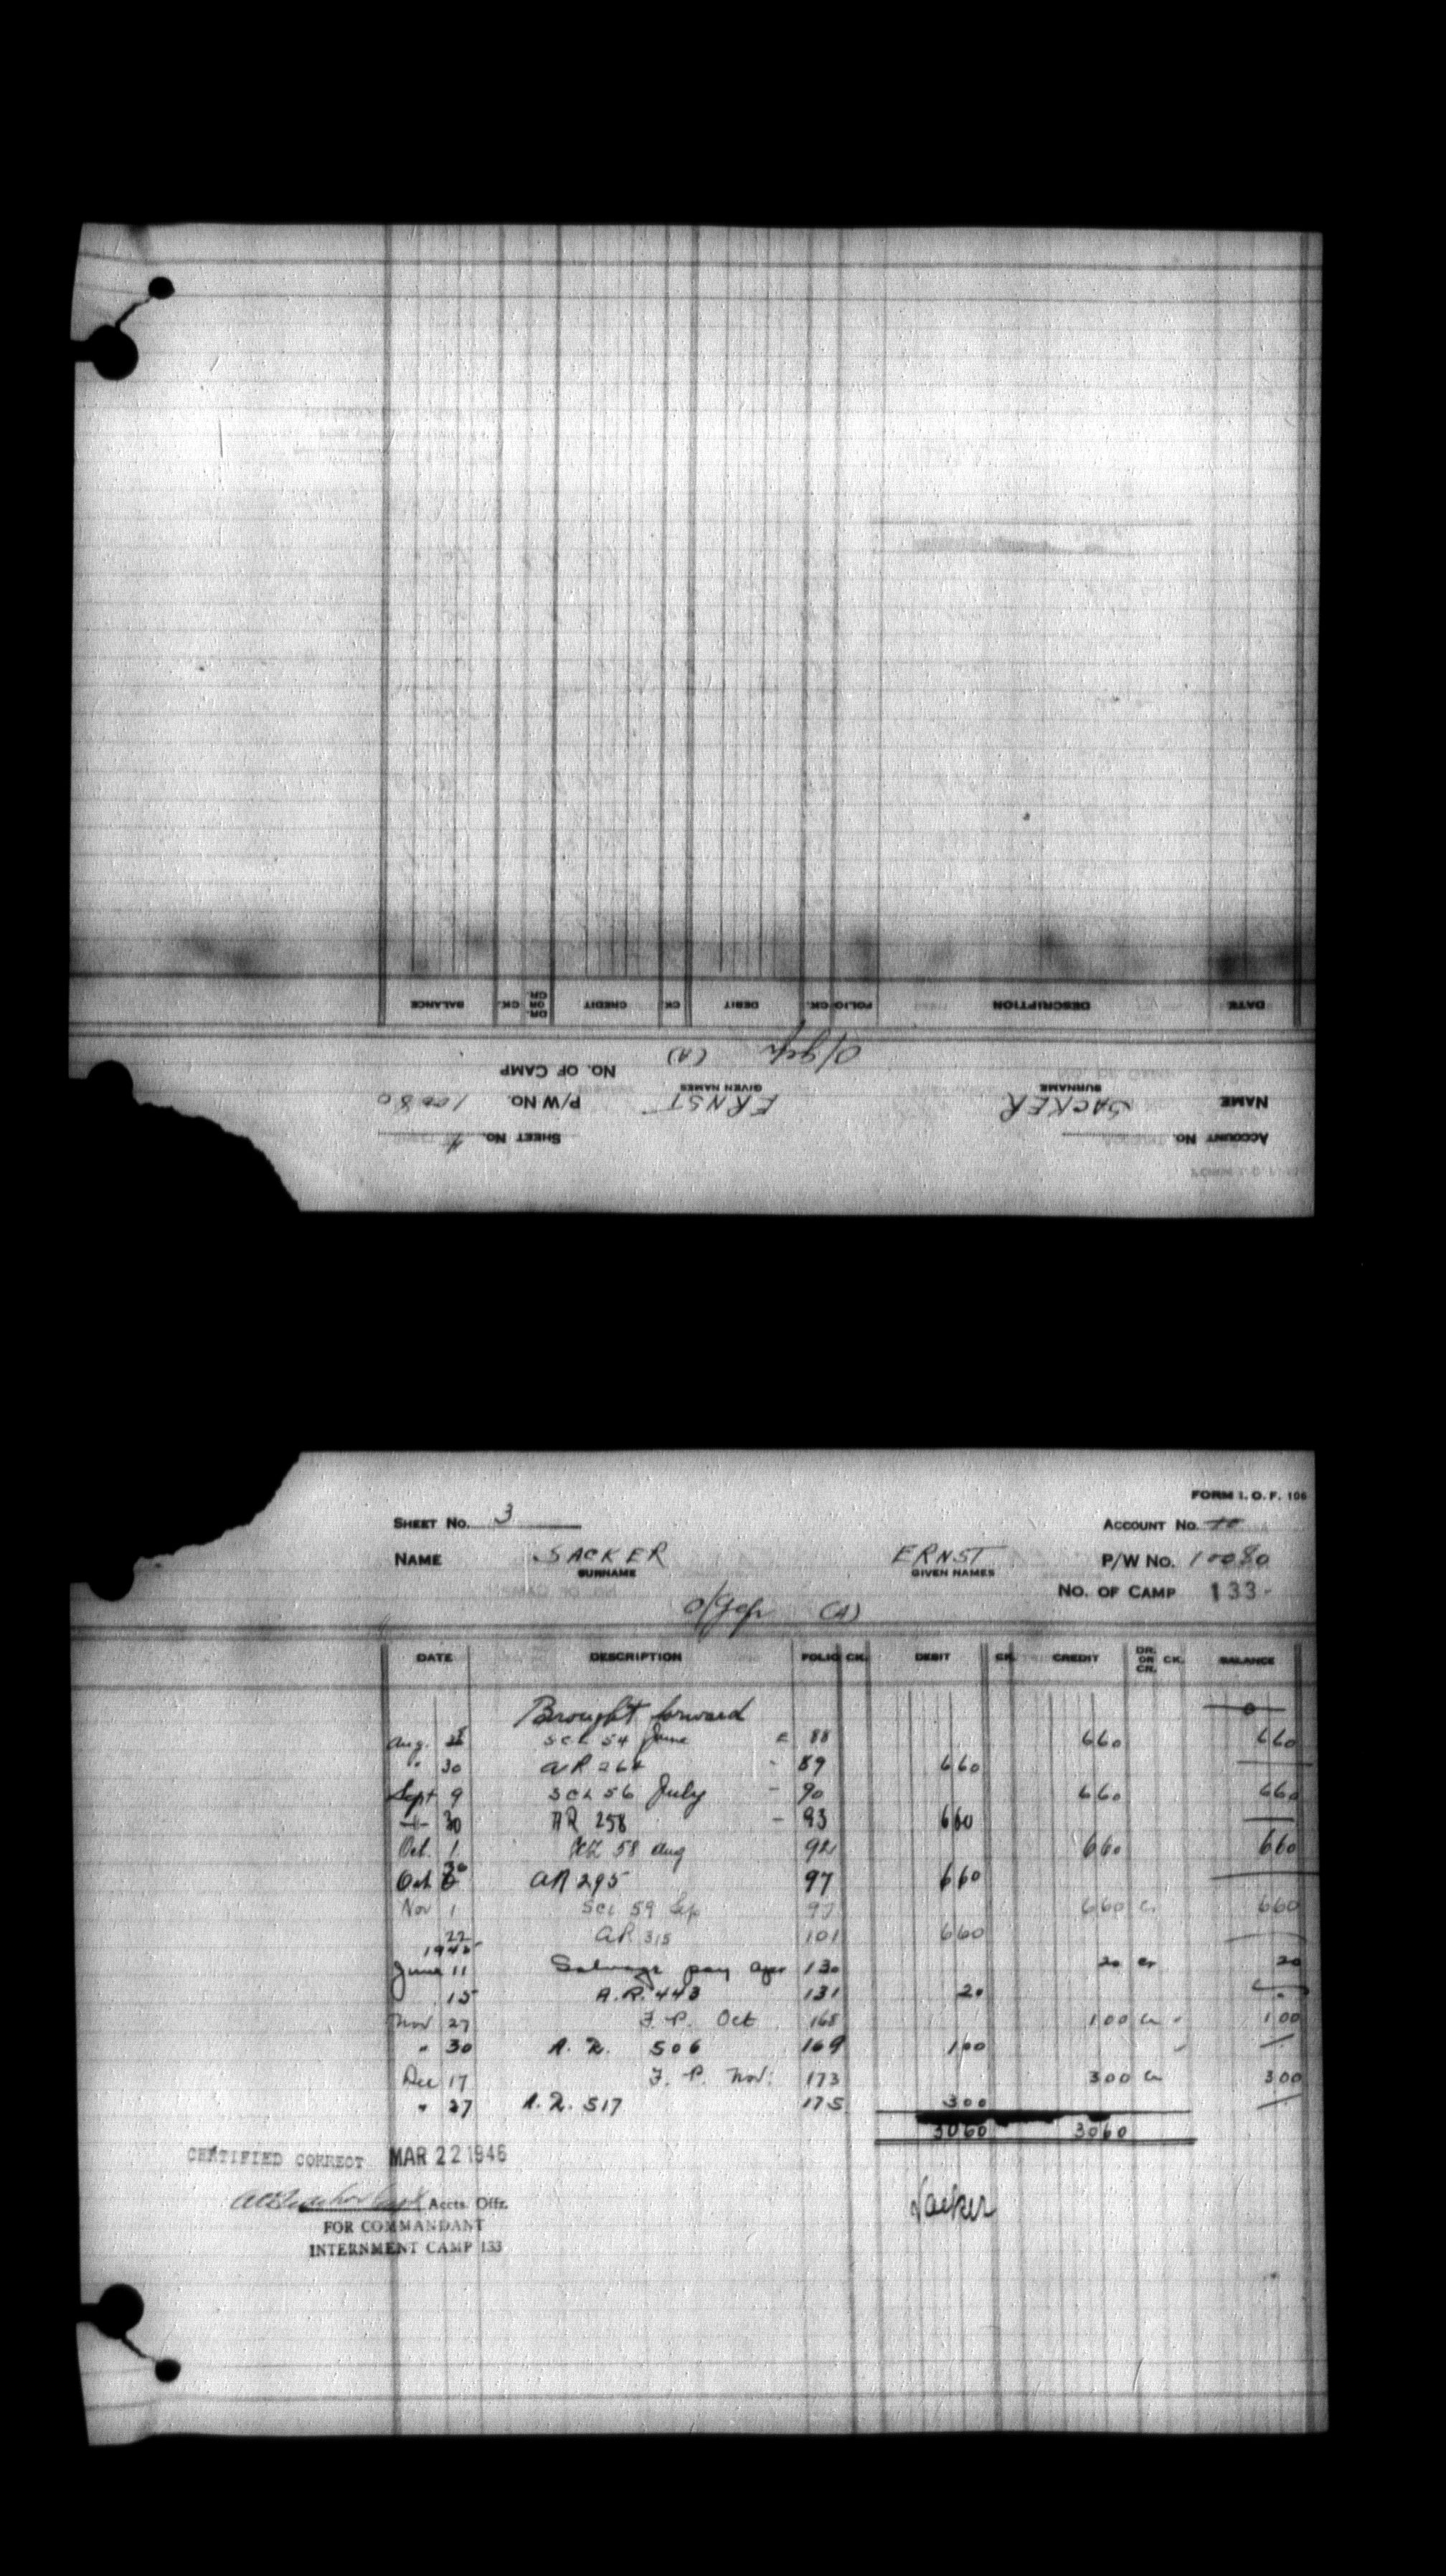 ACCOUNT NO. SHEET NO. 4
NAME SACKER ERNST P/W NO. 10080
SURNAME GIVEN NAMES
NO. OF CAMP
(A)
DATE DESCRIPTION FOLIO CK. DEBIT CK. CREDIT DR. OR CR. CK. BALANCE
FORM I. O. F. 106
SHEET NO. 3 ACCOUNT NO.
NAME SACKER ERNST P/W NO. 10080
SURNAME GIVEN NAMES
NO. OF CAMP 133
(A)
DATE DESCRIPTION FOLIO CK. DEBIT CK. CREDIT DR. OR CR. CK. BALANCE
Brought forward 0
Aug. SCL 54 June 88 660 660
" 30 AR 89 660
Sept 9 SCL 56 July 90 660 660
30 AR 258 93 660
Oct. 1 58 Aug 92 660 660
Oct 30 AR 295 97 660
Nov 1 SCL 59 Sep 97 660 Cr 660
22 AR 315 101 660
1945
June 11 Salvage pay 130 20 Cr 20
15 A.R. 443 131 20
Nov 27 F. P. Oct 168 100 Cr 100
" 30 A. R. 506 169 100
Dec 17 F. P. Nov. 173 300 Cr 300
" 27 A. R. 517 175 300
3060 3060
CERTIFIED CORRECT MAR 22 1946
Accts. Offr.
FOR COMMANDANT
INTERNMENT CAMP 133
Sacker